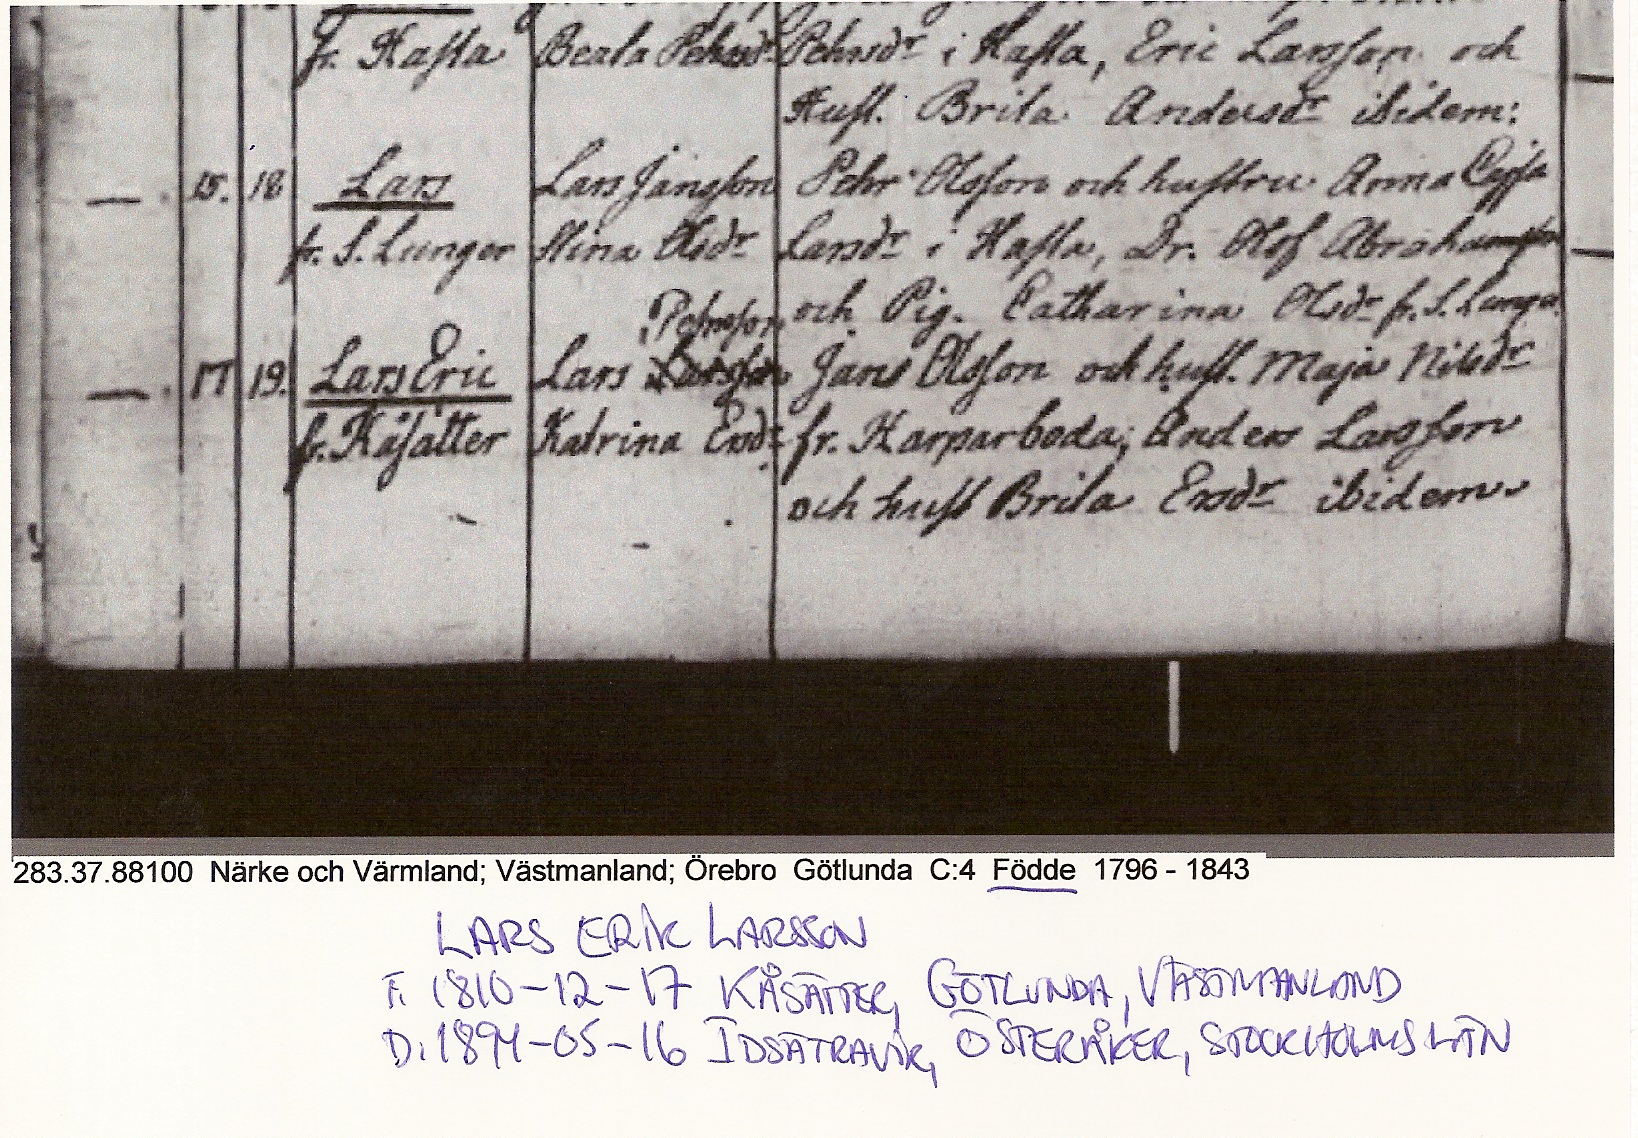 fr. Hasta Beata Pehrsdr Pehrsdr i Hasta, Eric Larsson och
Hust. Brita Andersdr ibidem:
—. 15. 18 Lars Lars Jansson Pehr Olsson och hustru Anna Cajsa
fr. S. Lunger Stina Olsdr Larsdr i Hasta, Dr. Olof Abrahamsson
Pehrsson och Pig. Catharina Olsdr fr. S. Lunger
—. 17 19. Lars Eric Lars Larsson Jans Olsson och hust. Maja Nilsdr
fr. Kåsätter Katrina Ersdr fr. Harparboda; Anders Larsson
och hust Brita Ersdr ibidem
283.37.88100 Närke och Värmland; Västmanland; Örebro Götlunda C:4 Födde 1796 - 1843
LARS ERIK LARSSON
F. 1810-12-17 KÅSÄTTER, GÖTLUNDA, VÄSTMANLAND
D. 1894-05-16 IDSÄTRAVIK, ÖSTERÅKER, STOCKHOLMS LÄN